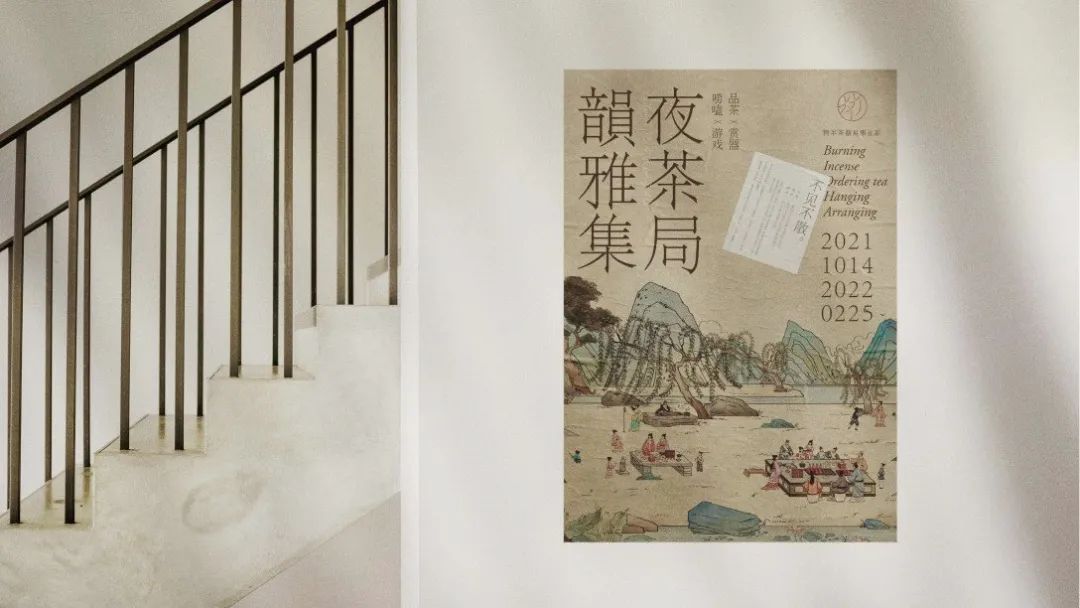 夜茶局
韻雅集
品茶×赏器
唠嗑×游戏
不见不散。
Burning
Incense
Ordering tea
Hanging
Arranging
2021
1014
2022
0225